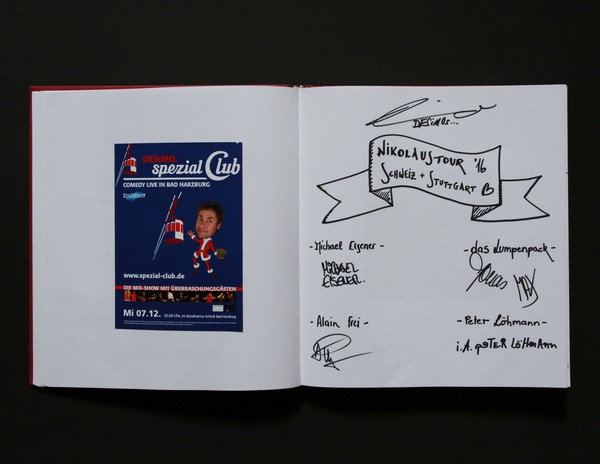 DESiMO.
spezial Club
COMEDY LIVE IN BAD HARZBURG
www.spezial-club.de
DIE MIX-SHOW MIT ÜBERRASCHUNGSGÄSTEN
Mi 07.12.
20.00 Uhr, im Bündheimer Schloß Bad Harzburg
DESiMOs...
NIKOLAUSTOUR '16
SCHWEIZ + STUTTGART
- Michael Elsener -
MICHAEL
ELSENER.
- das Lumpenpack -
Jonas
MAX
- Alain Frei -
- Peter Löhmann -
i.A. PETER LÖHMANN